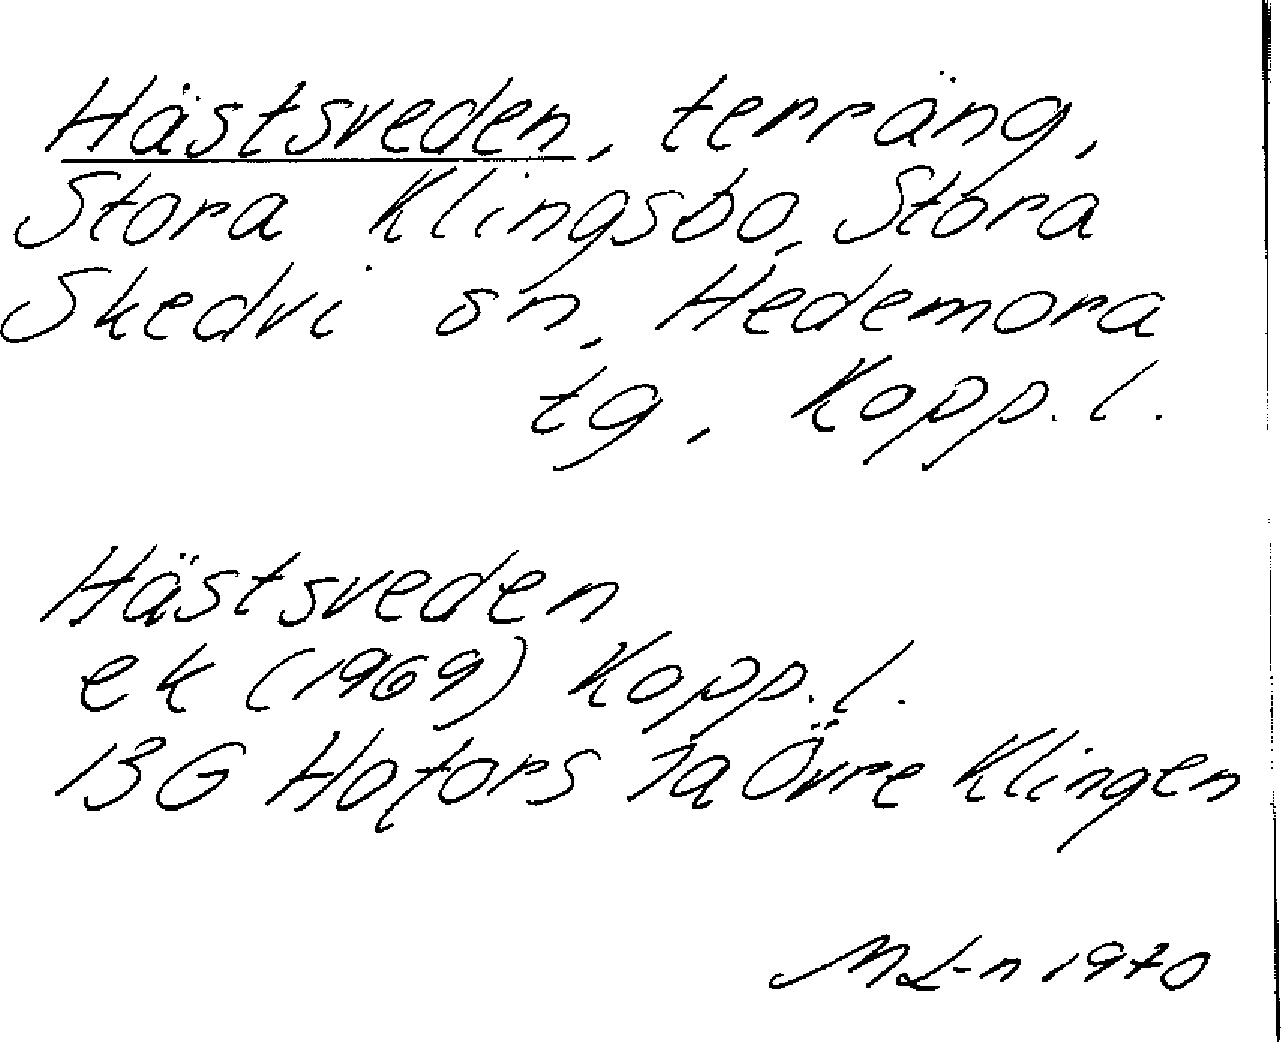 Hästsveden, terräng,
Stora Klingsbo, Stora
Skedvi sn, Hedemora
tg, Kopp. l.
Hästsveden
ek (1969) Kopp. l.
13G Hofors 1a Övre Klingen
ML-n 1970